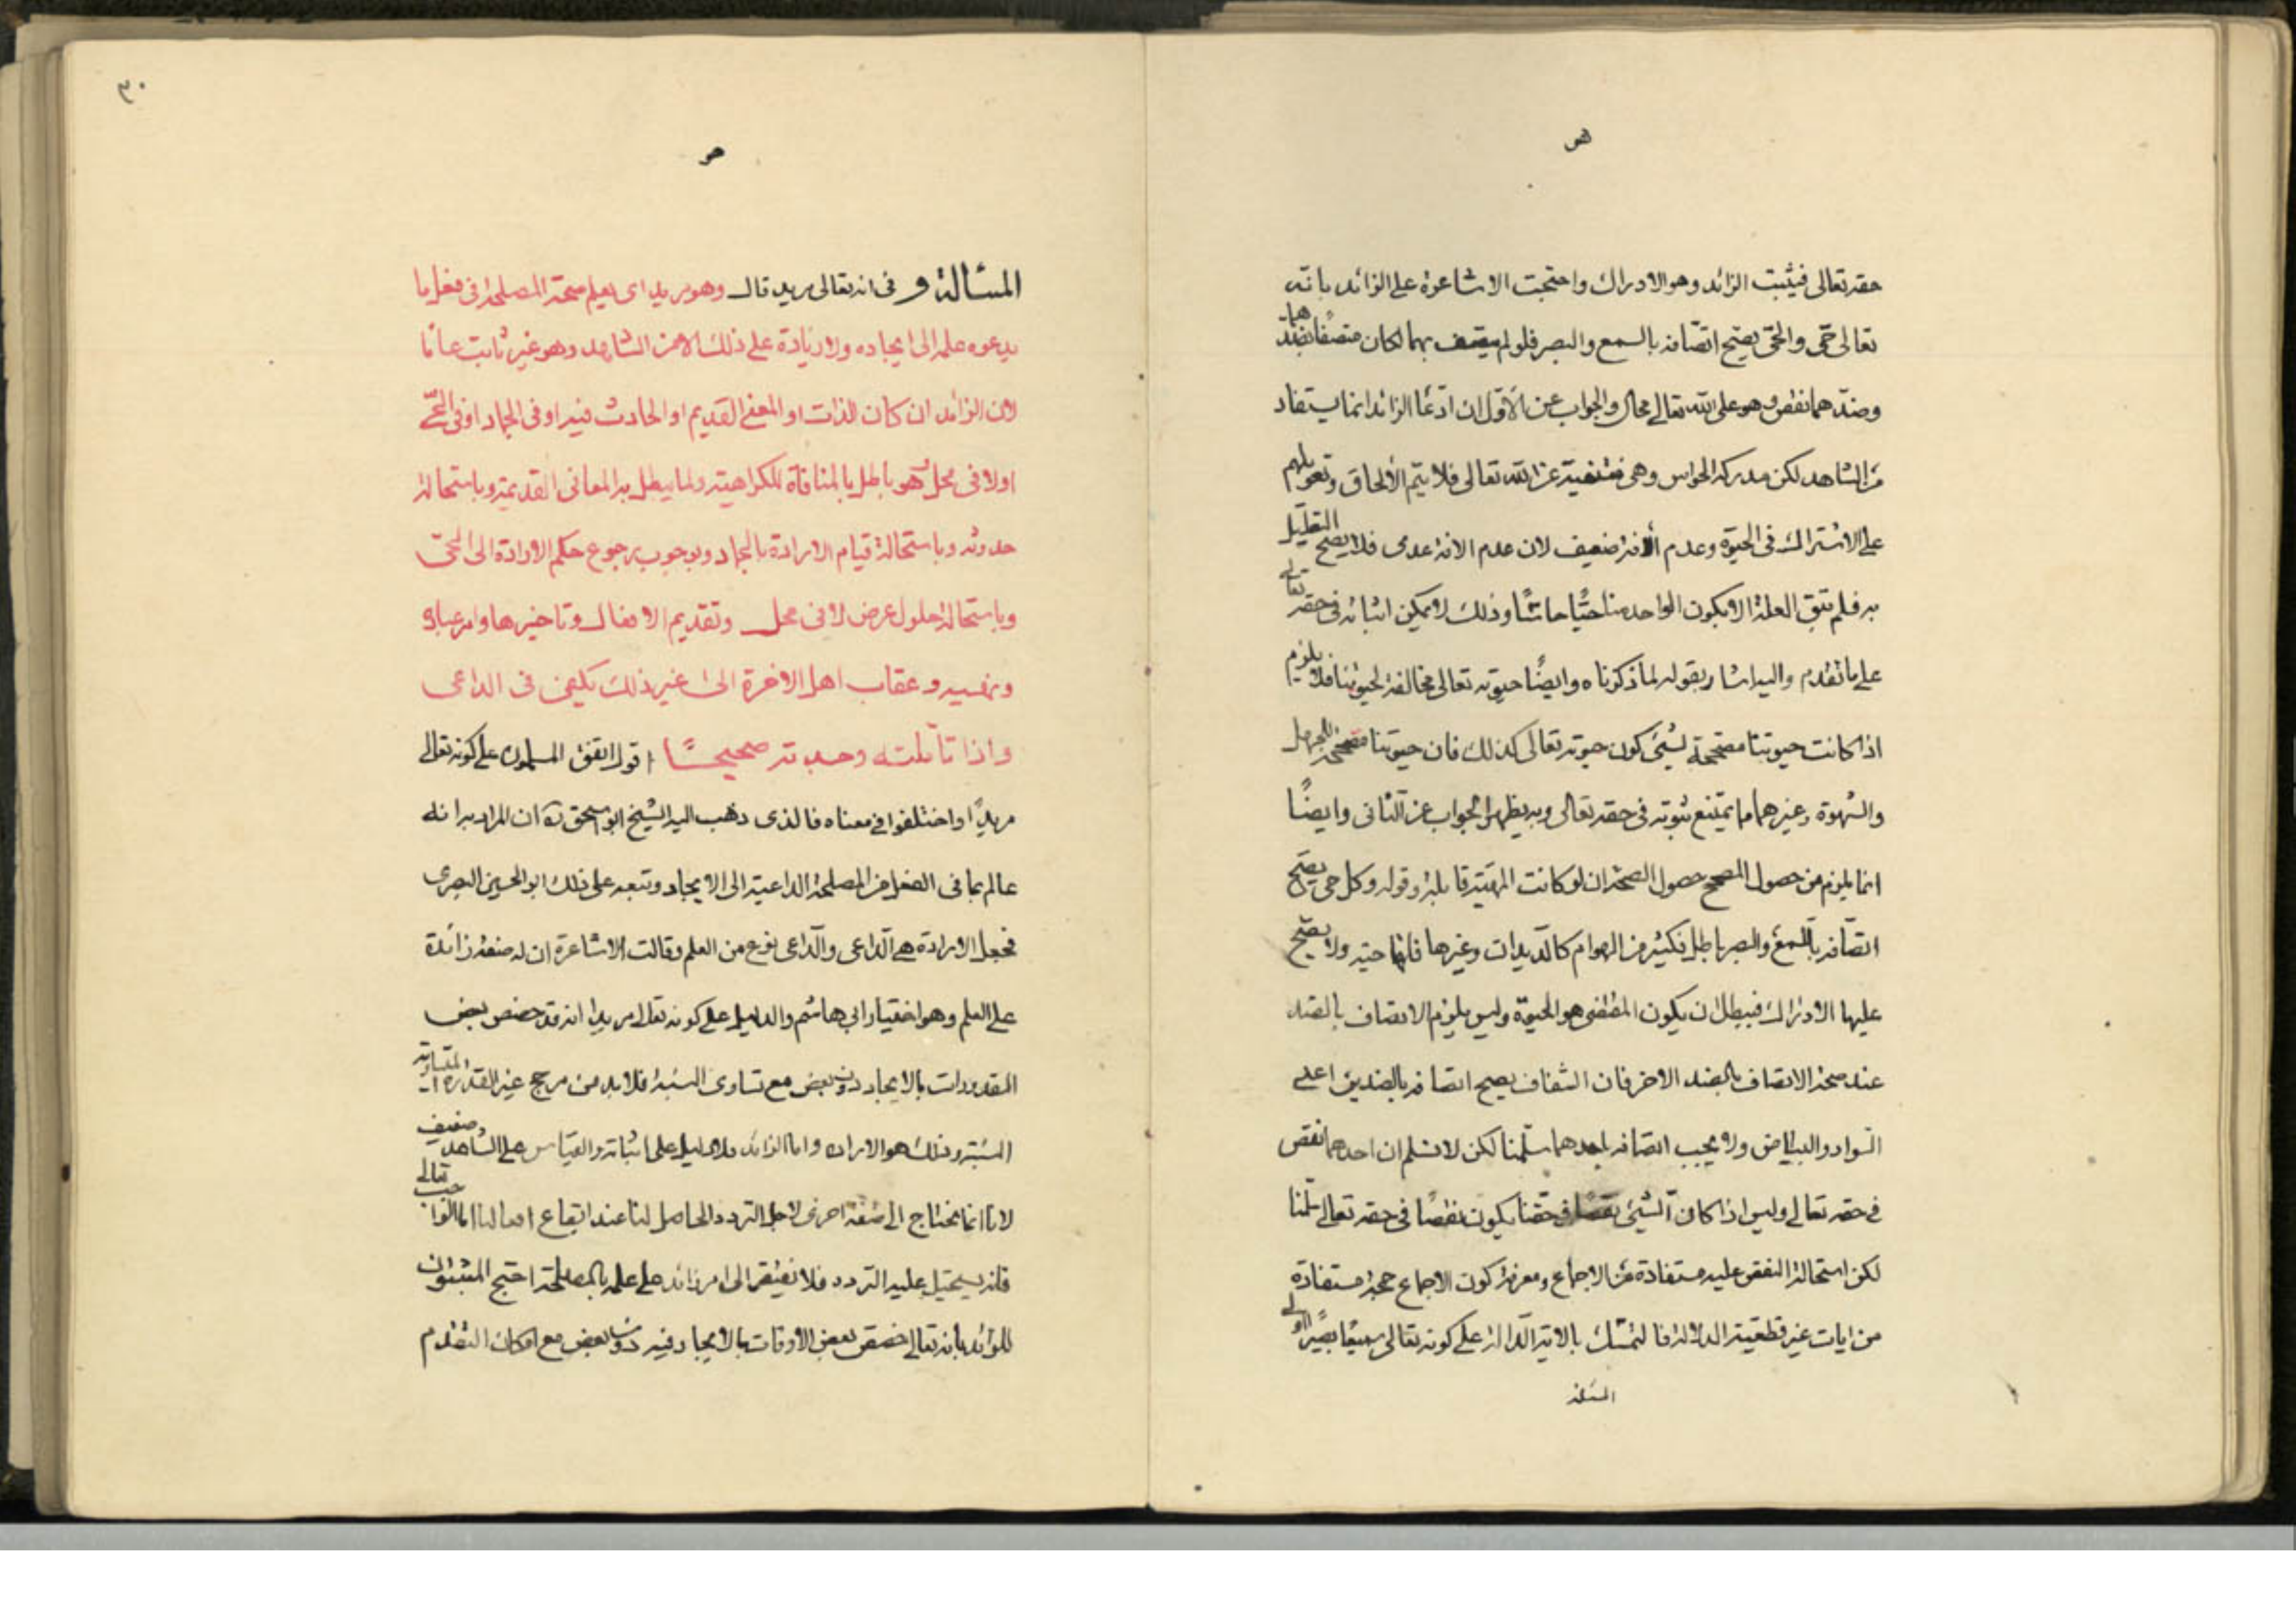 حقه تعالى فيثبت الزائد وهو الادراك واحتجت الاشاعرة على الزائد بانه
تعالى حى والحى يصح اتصافه بالسمع والبصر فلو لم يتصف بهما لكان متصفا بضدهما
وضدهما نقص وهو على الله تعالى محال والجواب عن الاول ان ادعا الزائد انما يستفاد
من الشاهد لكن مدركه الحواس وهى منتفية عن الله تعالى فلا يتم الالحاق وتعويلهم
على الاشتراك فى الحيوة وعدم الافة ضعيف لان عدم الافة عدمى فلا يصح التعليل
به فلم تبق العلة الا كون الواحد منا حيا حاسا وذلك لا يمكن اثباته فى حقه تعالى
على ما تقدم واليه اشار بقوله لما ذكرناه وايضا حيوته تعالى مخالفة لحيوتنا فلا يلزم
اذا كانت حيوتنا مصححة لشئ كون حيوته تعالى كذلك فان حيوتنا مصححة للجهل
والشهوة وغيرهما مما يمتنع ثبوته فى حقه تعالى وبه يظهر الجواب عن الثانى وايضا
انما يلزم من حصول المصحح حصول الصحة ان لو كانت المهية قابلة وقوله وكل حى يصح
اتصافه بالسمع والبصر باطل فكثير من الهوام كالديدات وغيرها فانها حية ولا يصح
عليها الادراك فيبطل ان يكون المقتضى هو الحيوة وليس يلزم الاتصاف بالضد
عند صحة الاتصاف بالضد الاخر فان الشفاف يصح اتصافه بالضدين اعنى
السواد والبياض ولا يجب اتصافه باحدهما سلمنا لكن لا نسلم ان احدهما نقص
فى حقه تعالى وليس اذا كان الشئ نقصا فى حقنا يكون نقصا فى حقه تعالى سلمنا
لكن استحالة النقص عليه مستفادة من الاجماع ومعرفة كون الاجماع حجة مستفادة
من ايات غير قطعية الدلالة فالتمسك بالاية الدالة على كونه تعالى سميعا بصيرا اولى
المسئلة
٣٠
المسألة و فى انه تعالى مريد قال وهو مريد اى يعلم صحة المصلحة فى فعل ما
يدعوه علمه الى ايجاده ولا زيادة على ذلك الا من الشاهد وهو غير ثابت غائبا
لان الزائد ان كان للذات او المعنى القديم او الحادث فيه او فى الجماد او فى الحى
او لا فى محل فهو باطل بالمنافاة للكراهية ولما يبطل به المعانى القديمة وباستحالة
حدوثه وباستحالة قيام الارادة بالجماد وبوجوب رجوع حكم الارادة الى الحى
وباستحالة حلول عرض لا فى محل وتقديم الافعال وتاخيرها وامر عباده
ونهيه وعقاب اهل الاخرة الى غير ذلك يكفى فى الداعى
واذا تأملته وجدته صحيحا اقول اتفق المسلمون على كونه تعالى
مريدا واختلفوا فى معناه فالذى ذهب اليه الشيخ ابو اسحق ره ان المراد به انه
عالم بما فى الفعل من المصلحة الداعية الى الايجاد وتبعه على ذلك ابو الحسين البصرى
فجعل الارادة هى الداعى والداعى نوع من العلم وقالت الاشاعرة ان له صفة زائدة
على العلم وهو اختيار ابى هاشم والدليل على كونه تعالى مريدا انه قد خصص بعض
المقدورات بالايجاد دون بعض مع تساوى النسبة فلابد من مرجح غير القدرة المتساوية
النسبة وذلك هو الارادة واما الزائد فلا دليل على اثباته والقياس على الشاهد ضعيف
لانا انما نحتاج الى صفة اخرى لاجل التردد الحاصل لنا عند ايقاع افعالنا اما الواجب تعالى
فانه يستحيل عليه التردد فلا نفتقر الى امر زائد على علمه بالمصلحة احتج المثبتون
للزائد بانه تعالى خصص بعض الاوقات بالايجاد فيه دون بعض مع امكان التقدم